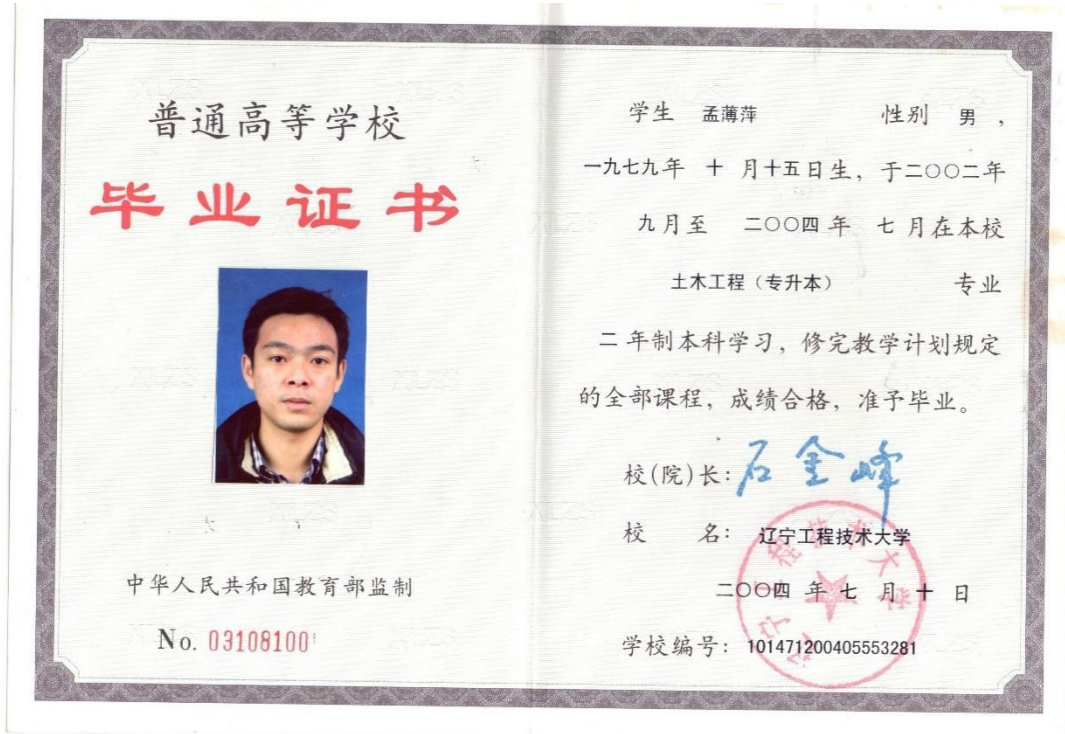 普通高等学校
毕业证书
中华人民共和国教育部监制
No. 03108100
学生 孟薄萍 性别 男，
一九七九年 十 月十五日生，于二〇〇二年
九月至 二〇〇四年 七 月在本校
土木工程（专升本） 专业
二 年制本科学习，修完教学计划规定
的全部课程，成绩合格，准予毕业。
校(院)长：石金峰
校 名：辽宁工程技术大学
二〇〇四 年 七 月 十 日
学校编号：101471200405553281
辽宁工程技术大学
XLZS